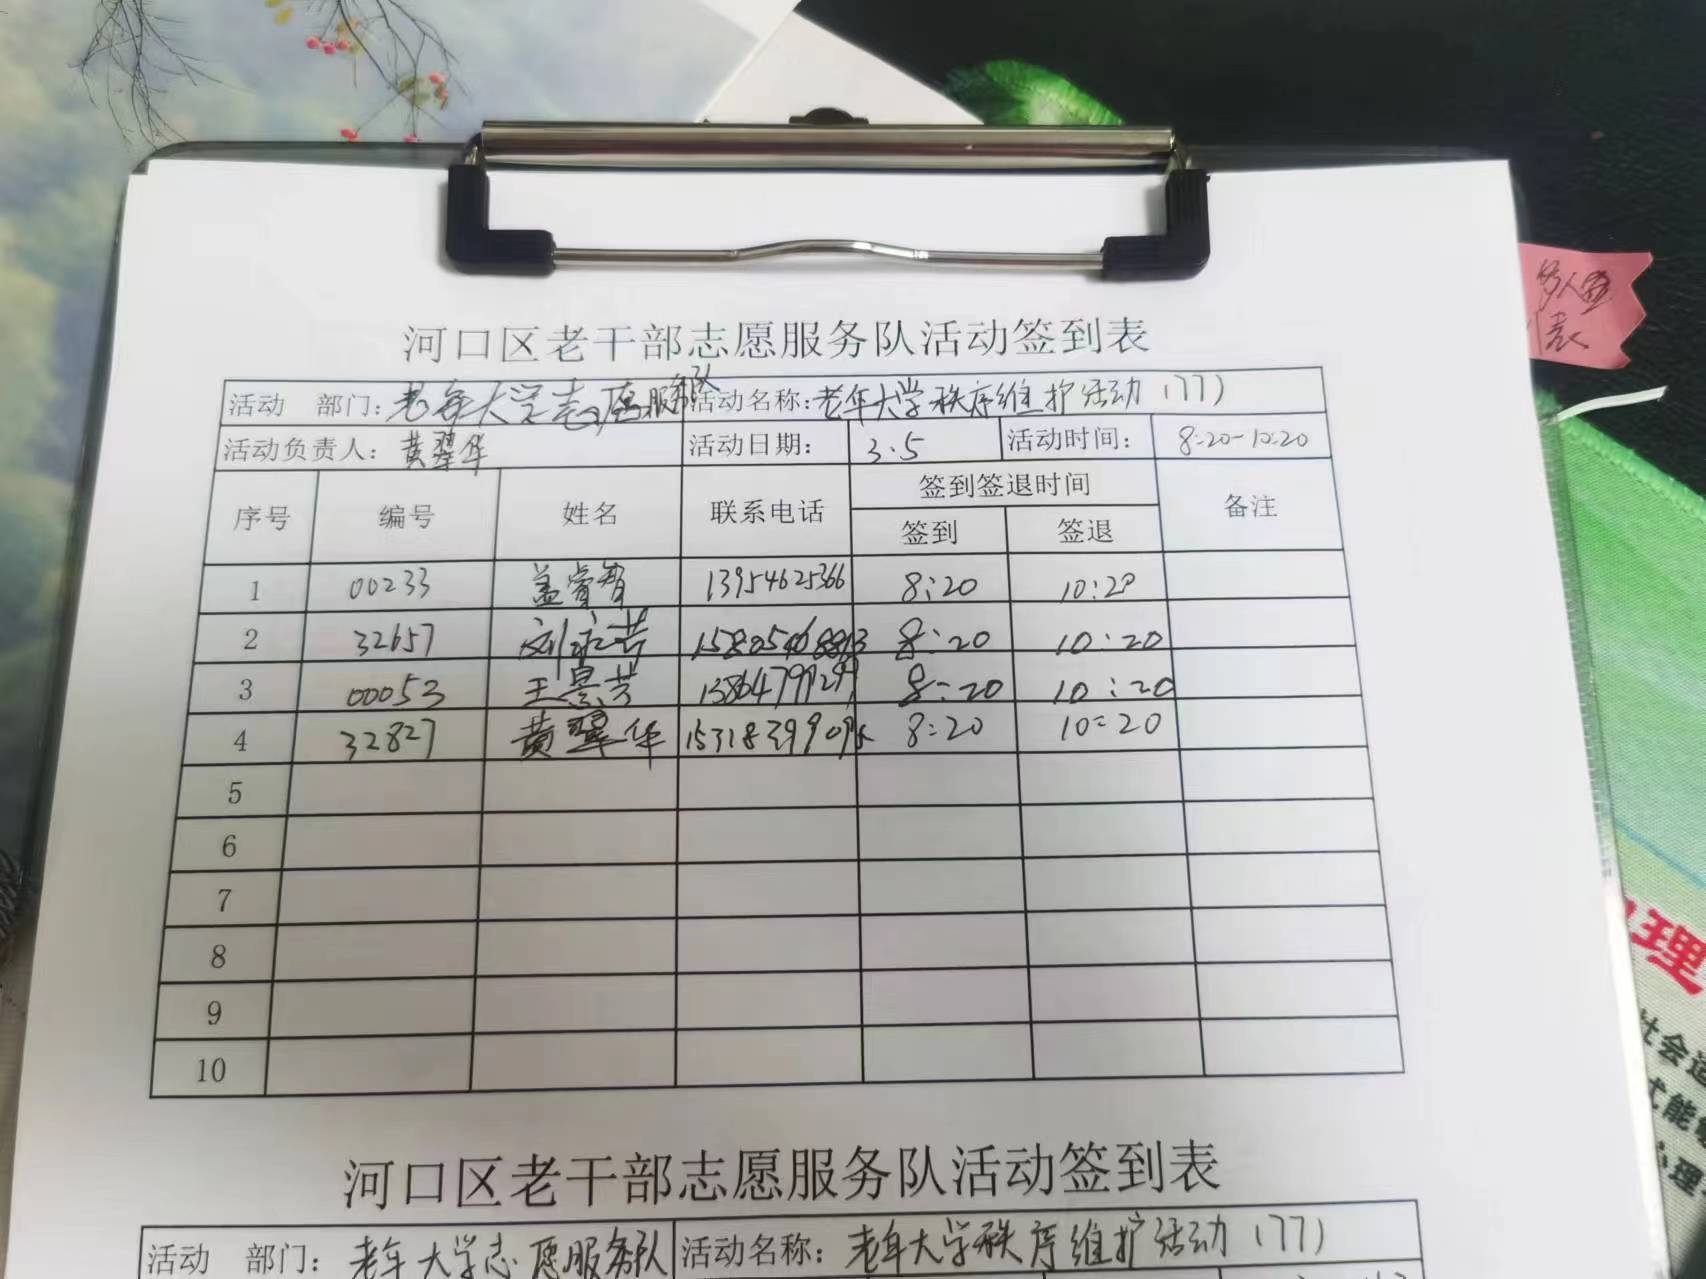 河口区老干部志愿服务队活动签到表
活动 部门：老年大学志愿服务队 活动名称：老年大学秩序维护活动（77）
活动负责人：黄翠华 活动日期： 3.5 活动时间： 8:20-10:20
序号 编号 姓名 联系电话 签到签退时间 备注
签到 签退
1 00233 盖睿智 13954625366 8:20 10:20
2 32657 刘永芳 8:20 10:20
3 00053 王景芳 8:20 10:20
4 32827 黄翠华 8:20 10:20
5
6
7
8
9
10
河口区老干部志愿服务队活动签到表
活动 部门：老年大学志愿服务队 活动名称：老年大学秩序维护活动（77）
理
社会适
式能
心理